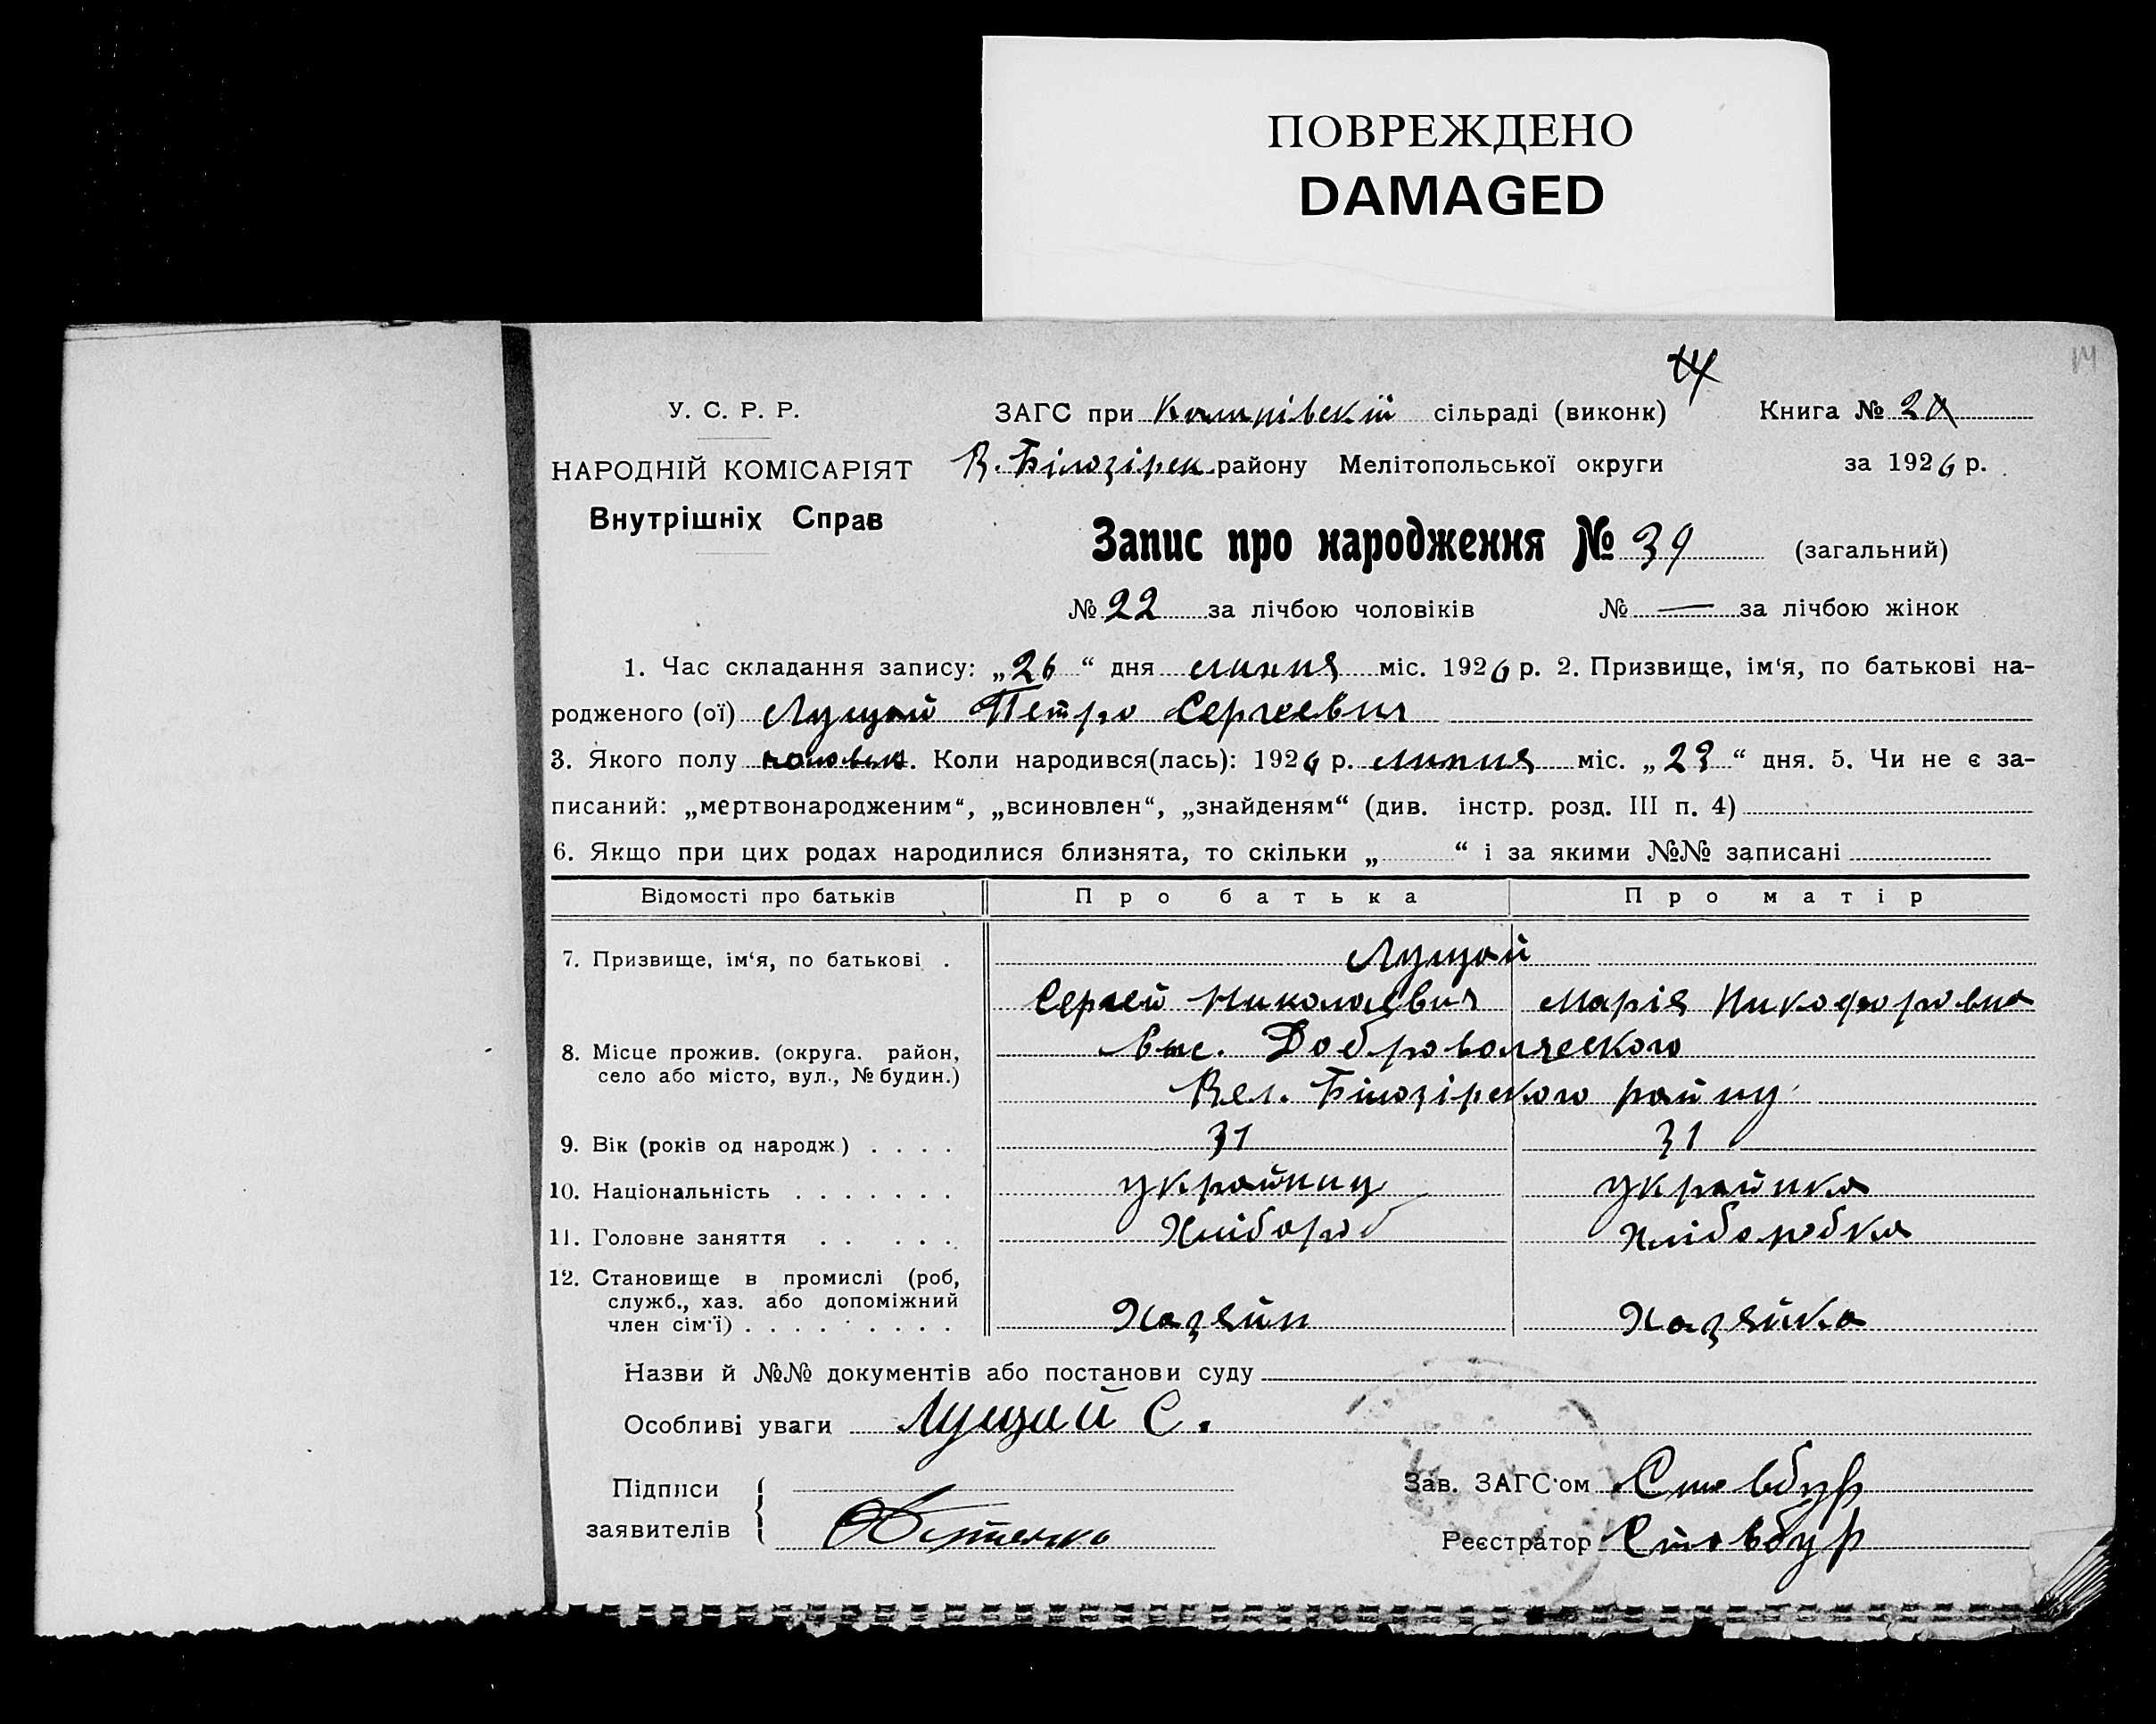 ПОВРЕЖДЕНО
DAMAGED
14
У. С. Р. Р.
НАРОДНІЙ КОМІСАРІЯТ
Внутрішніх Справ
ЗАГС при сільраді (виконк) Книга № 2
В. Білозірск. району Мелітопольської округи за 1926 р.
Запис про народження № 39 (загальний)
№ 22 за лічбою чоловіків № — за лічбою жінок
1. Час складання запису: „26“ дня липня міс. 1926 р. 2. Призвище, ім‘я, по батькові на-
родженого (ої) Луцай Петро Сергеевич
3. Якого полу чоловік. Коли народився(лась): 1926 р. липня міс. „23“ дня. 5. Чи не є за-
писаний: „мертвонародженим“, „всиновлен“, „знайденям“ (див. інстр. розд. III п. 4)
6. Якщо при цих родах народилися близнята, то скільки „ “ і за якими №№ записані
Відомості про батьків Про батька Про матір
7. Призвище, ім‘я, по батькові . Луцай
Сергей Николаевич Марія Никофоровна
8. Місце прожив. (округа. район,
село або місто, вул., № будин.)
Выс. Добровольческого
Вел. Білозірского району
9. Вік (років од народж.) . . . . 31 31
10. Національність . . . . . . . украйниц украйнка
11. Головне заняття . . . . . Хлібороб Хліборобка
12. Становище в промислі (роб,
служб., хаз. або допоміжний
член сім‘ї) . . . . . . . . . Хазяйн Хазяйка
Назви й №№ документів або постанови суду
Особливі уваги Луцай С.
Підписи
заявителів
Зав. ЗАГС‘ом Стовбур
Реєстратор Стовбур